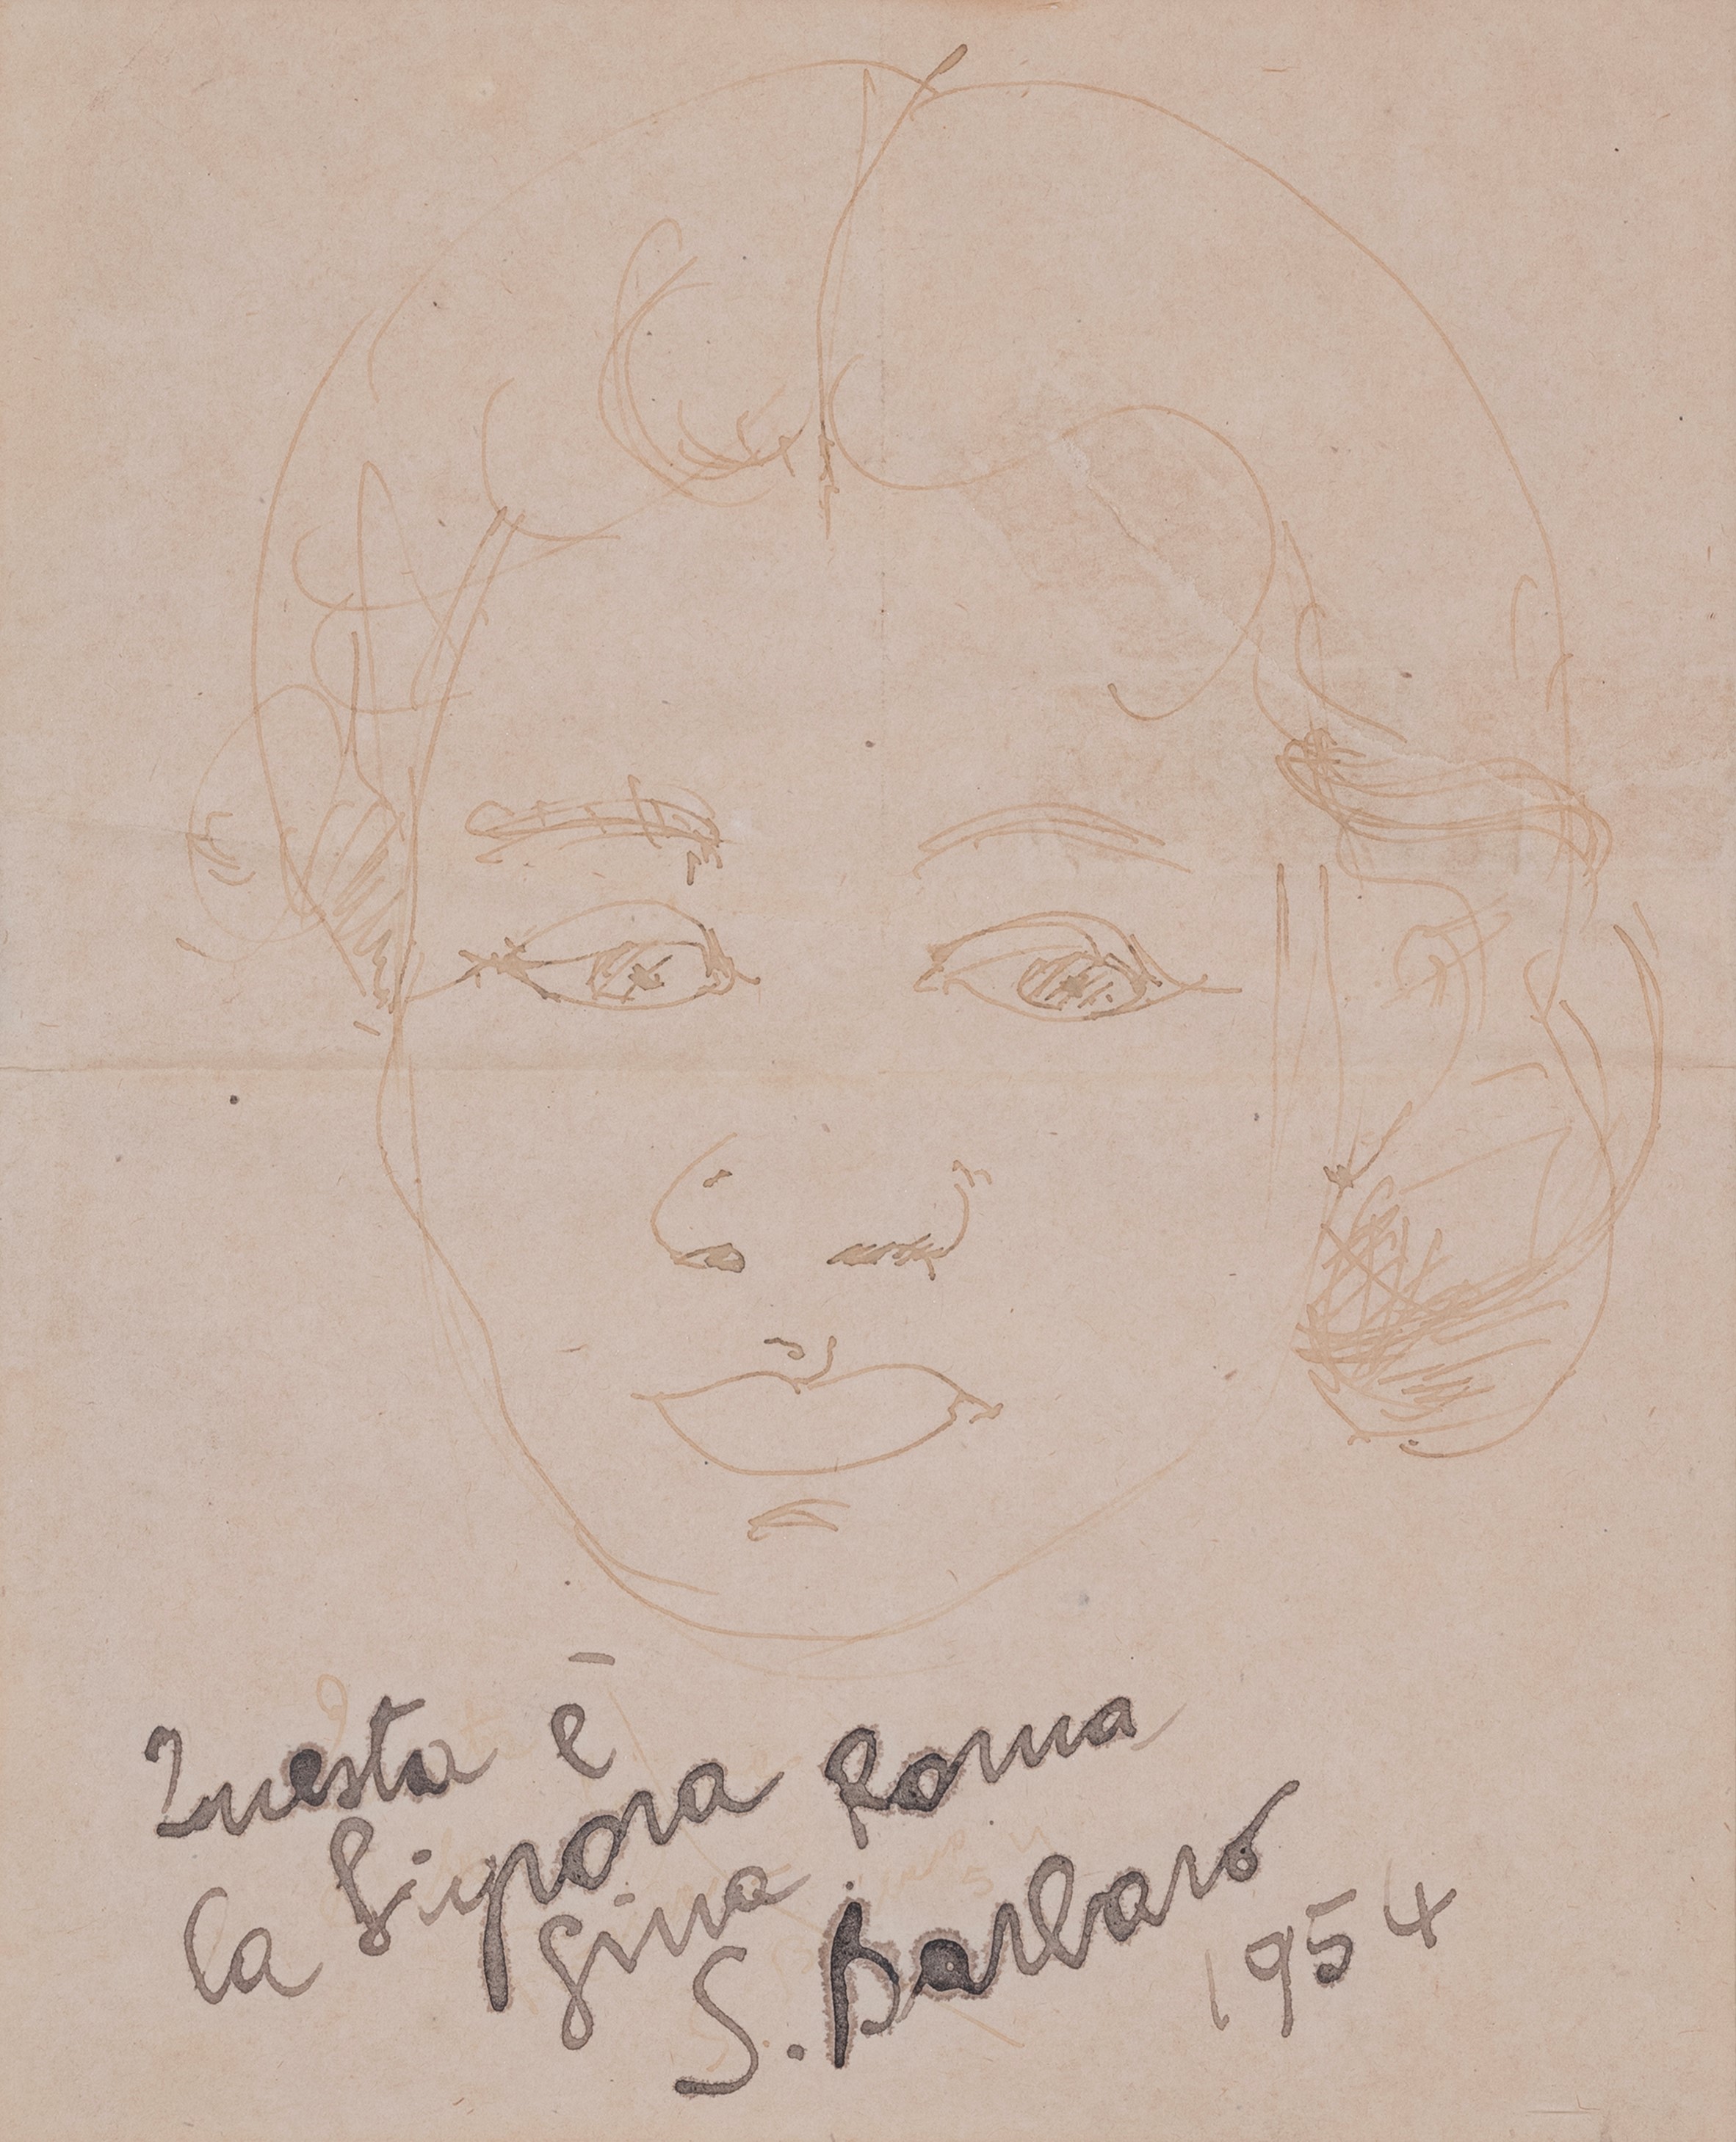 Questa è
la Signora Roma
Gina
S. Barbaro
1954